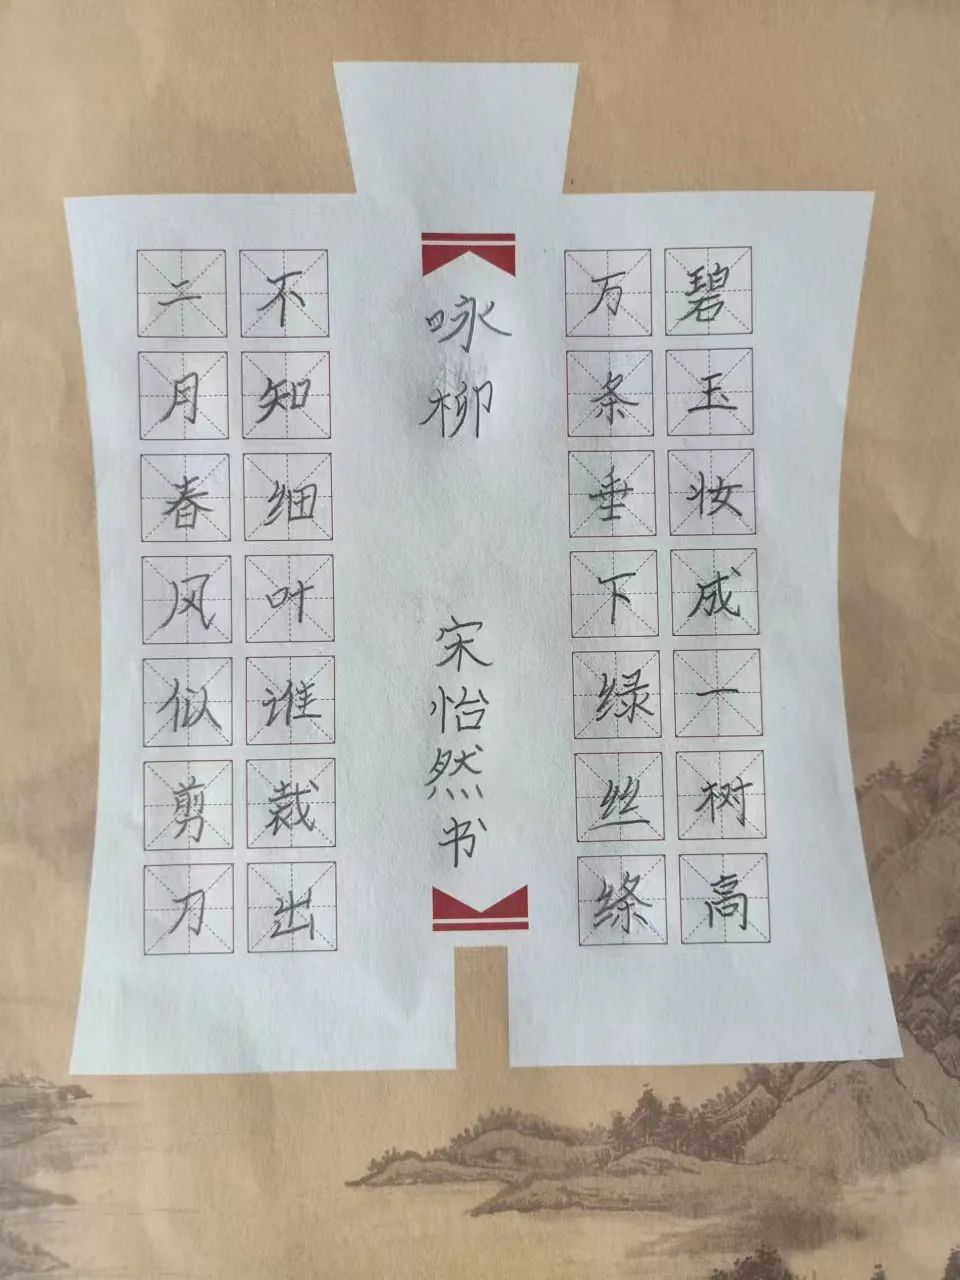 碧玉妆成一树高
万条垂下绿丝绦
咏柳
宋怡然书
不知细叶谁裁出
二月春风似剪刀